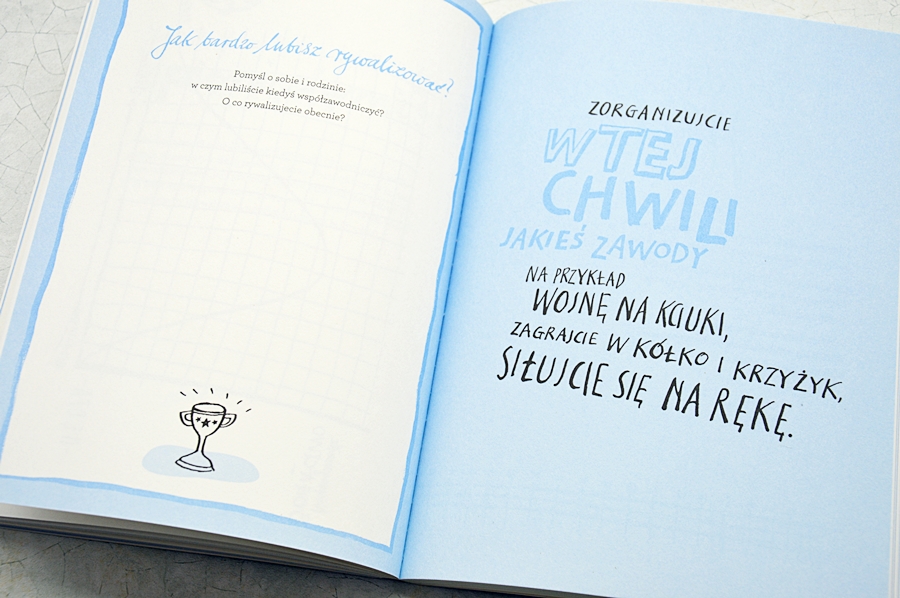 Jak bardzo lubisz rywalizować?
Pomyśl o sobie i rodzinie:
w czym lubiliście kiedyś współzawodniczyć?
O co rywalizujecie obecnie?
ZORGANIZUJCIE
W TEJ
CHWILI
JAKIEŚ ZAWODY
NA PRZYKŁAD
WOJNĘ NA KCIUKI,
ZAGRAJCIE W KÓŁKO I KRZYŻYK,
SIŁUJCIE SIĘ NA RĘKĘ.